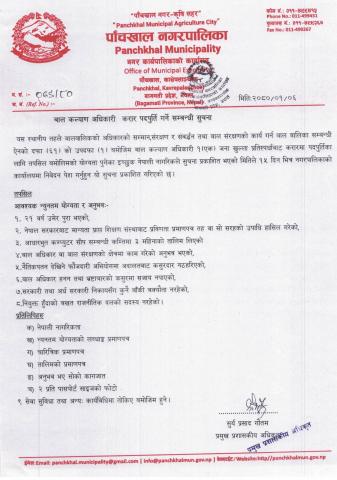 "पाँचखाल नगर-कृषि सहर"
"Panchkhal Municipal Agriculture City"
पाँचखाल नगरपालिका
Panchkhal Municipality
नगर कार्यपालिकाको कार्यालय
Office of Municipal Executive
पाँचखाल, काभ्रेपलाञ्चोक
Panchkhal, Kavrepalanchok
बागमती प्रदेश, नेपाल
(Bagamati Province, Nepal)
फोन नं.: ०११-४९९४३१
Phone No.: 011-499431
फ्याक्स नं.: ०११-४९९२६७
Fax No.: 011-499267
प. सं. :- ०८९/८०
च. नं. (Ref. No.) :-
मिति:२०८०/०९/०६
बाल कल्याण अधिकारी करार पदपुर्ति गर्ने सम्बन्धी सुचना
यस स्थानीय तहले बालबालिकाको अधिकारको सम्मान,संरक्षण र संवर्द्धन तथा बाल संरक्षणको कार्य गर्न बाल बालिका सम्बन्धी
ऐनको दफा (६१) को उपदफा (१) बमोजिम बाल कल्याण अधिकारी १(एक) जना खुल्ला प्रतिस्पर्धाबाट करारमा पदपुर्तिका
लागि तपसिल बमोजिमको योग्यता पुगेका इच्छुक नेपाली नागरिकले सुचना प्रकाशित भएको मितिले १५ दिन भित्र नगरपालिकाको
कार्यालयमा निवेदन पेश गर्नुहुन यो सुचना प्रकाशित गरिएको छ।
तपसिल
आवश्यक न्युनतम योग्यता र अनुभवः-
१. २१ वर्ष उमेर पुरा भएको,
२. नेपाल सरकारबाट मान्यता प्राप्त शिक्षण संस्थाबाट प्रविणता प्रमाणपत्र तह वा सो सरहको उपाधि हासिल गरेको,
३. आधारभुत कम्प्युटर सीप सम्बन्धी कम्तिमा ३ महिनाको तालिम लिएको
४.बाल अधिकार वा बाल संरक्षणको क्षेत्रमा काम गरेको अनुभव भएको,
५.नैतिकपतन देखिने फौजदारी अभियोगमा अदालतबाट कसुरदार नठहरिएको,
६.बाल अधिकार हनन तथा भ्रष्टाचारको कसुरमा सजाय नपाएको,
७.सरकारी तथा अर्ध सरकारी निकायसँग कुनै बाँकी बक्यौता नरहेको,
८.नियुक्त हुँदाको बखत राजनीतिक दलको सदस्य नरहेको।
प्रतिलिपिहरु
क) नेपाली नागरिकता
ख) न्यनतम योग्यताको लब्धाङ्क प्रमाणपत्र
ग) चारित्रिक प्रमाणपत्र
घ) तालिमको प्रमाणपत्र
ङ) अनुभव भए सोको कागजात
च) २ प्रति पासपोर्ट साइजको फोटो
९ सेवा सुविधा तथा अन्यः कार्यविधिमा तोकिए बमोजिम हुने।
सुर्य प्रसाद गौतम
प्रमुख प्रशासकीय अधिकृत
प्रमुख प्रशासकीय अधिकृत
इमेल Email: panchkhal.municipality@gmail.com | info@panchkhalmun.gov.np | वेबसाईट/Website: http//panchkhalmun.gov.np